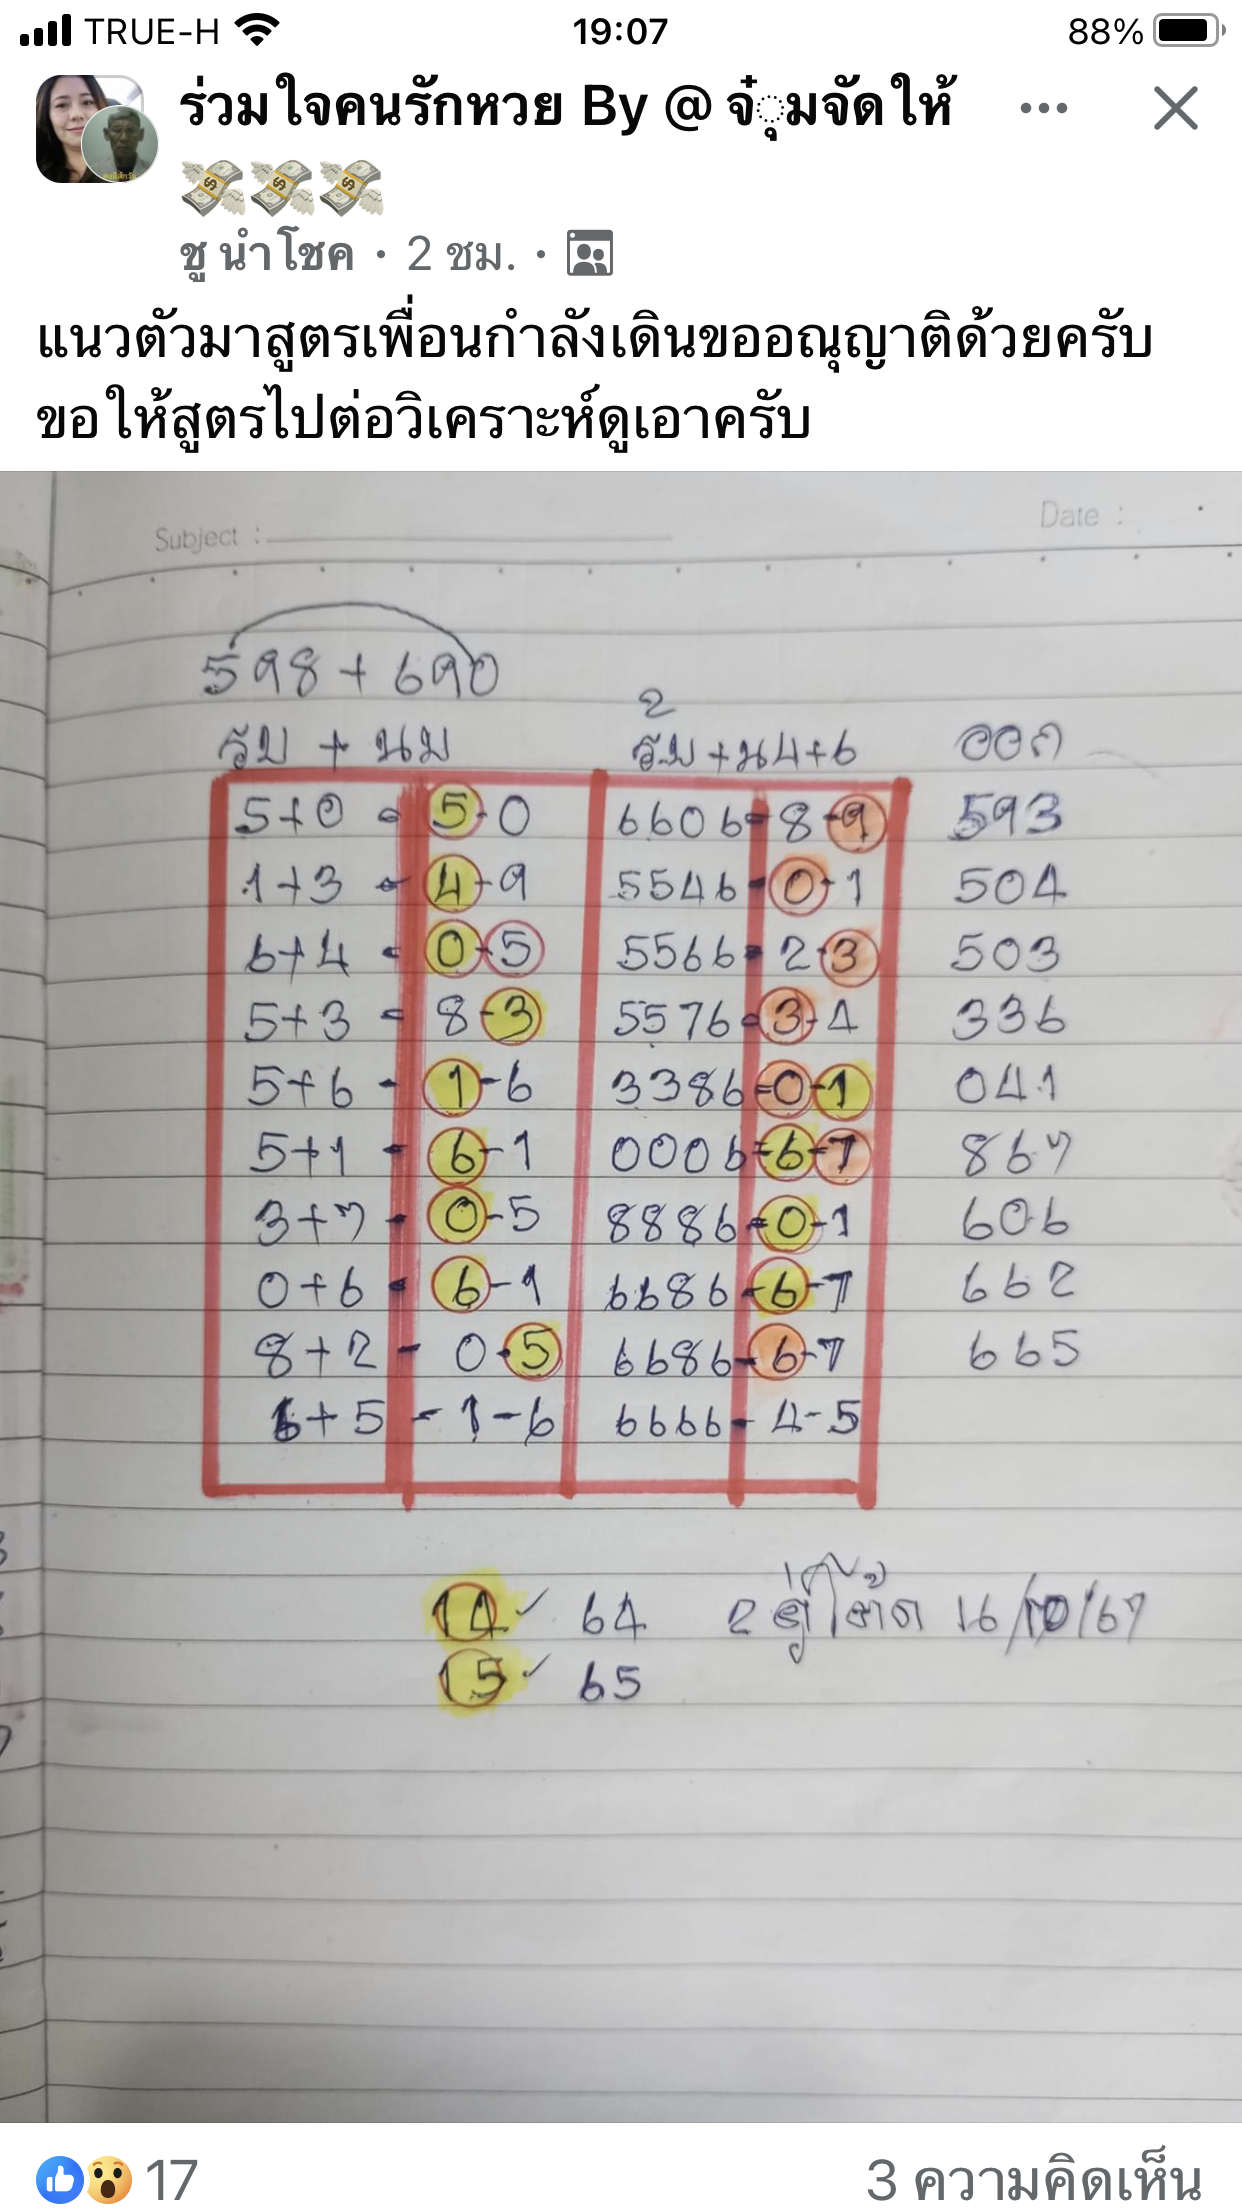 TRUE-H 19:07 88%
ร่วมใจคนรักหวย By @ จุ๋มจัดให้
💸💸💸
ชู นำโชค · 2 ชม. ·
แนวตัวมาสูตรเพื่อนกำลังเดินขออณุญาติด้วยครับ
ขอให้สูตรไปต่อวิเคราะห์ดูเอาครับ
Subject : Date :
598 + 690
2
รับ + นบ รับ+น4+6 ออก
5+0 = 5-0 6606 = 8-9 593
1+3 = 4-9 5546 - 0-1 504
6+4 = 0-5 5566 = 2-3 503
5+3 = 8-3 5576 = 3-4 336
5+6 - 1-6 3386 = 0-1 041
5+1 - 6-1 0006 = 6-7 867
3+7 - 0-5 8886 = 0-1 606
0+6 = 6-1 6686 - 6-7 662
8+2 - 0-5 6686 - 6-7 665
6+5 - 1-6 6666 - 4-5
14 ✓ 64 16/10/67
15 ✓ 65
17 3 ความคิดเห็น